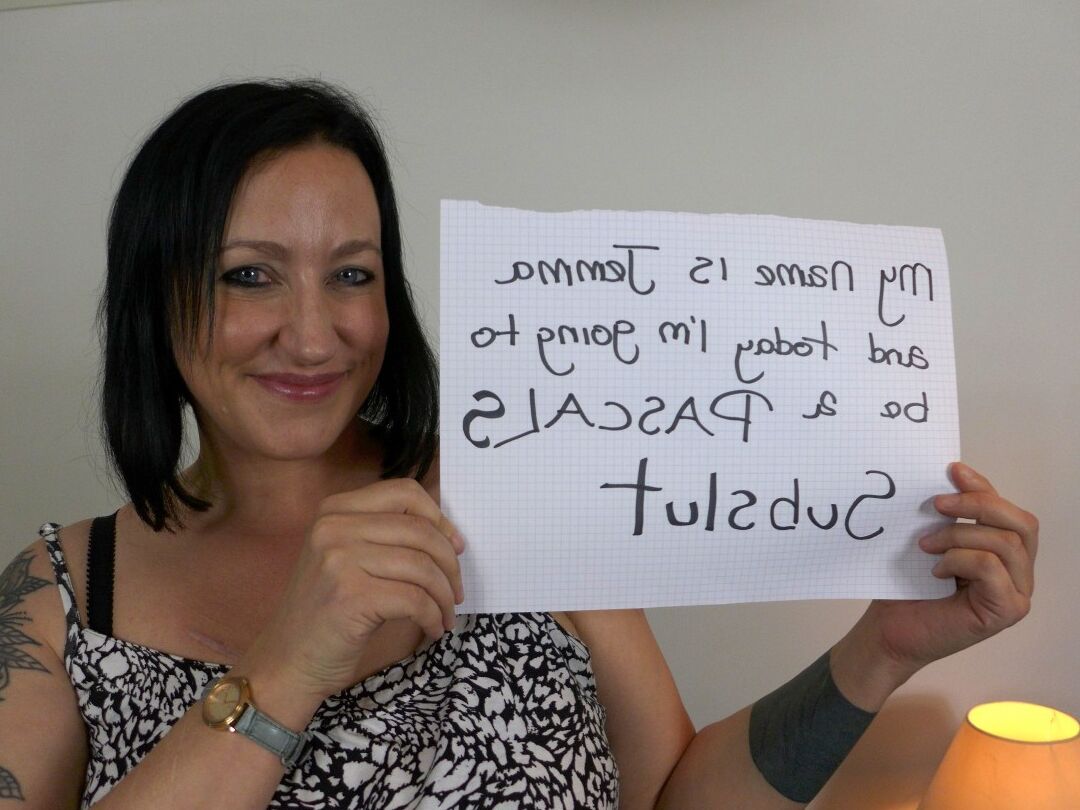 My name is Jemma
and today I'm going to
be a PASCALS
Subslut